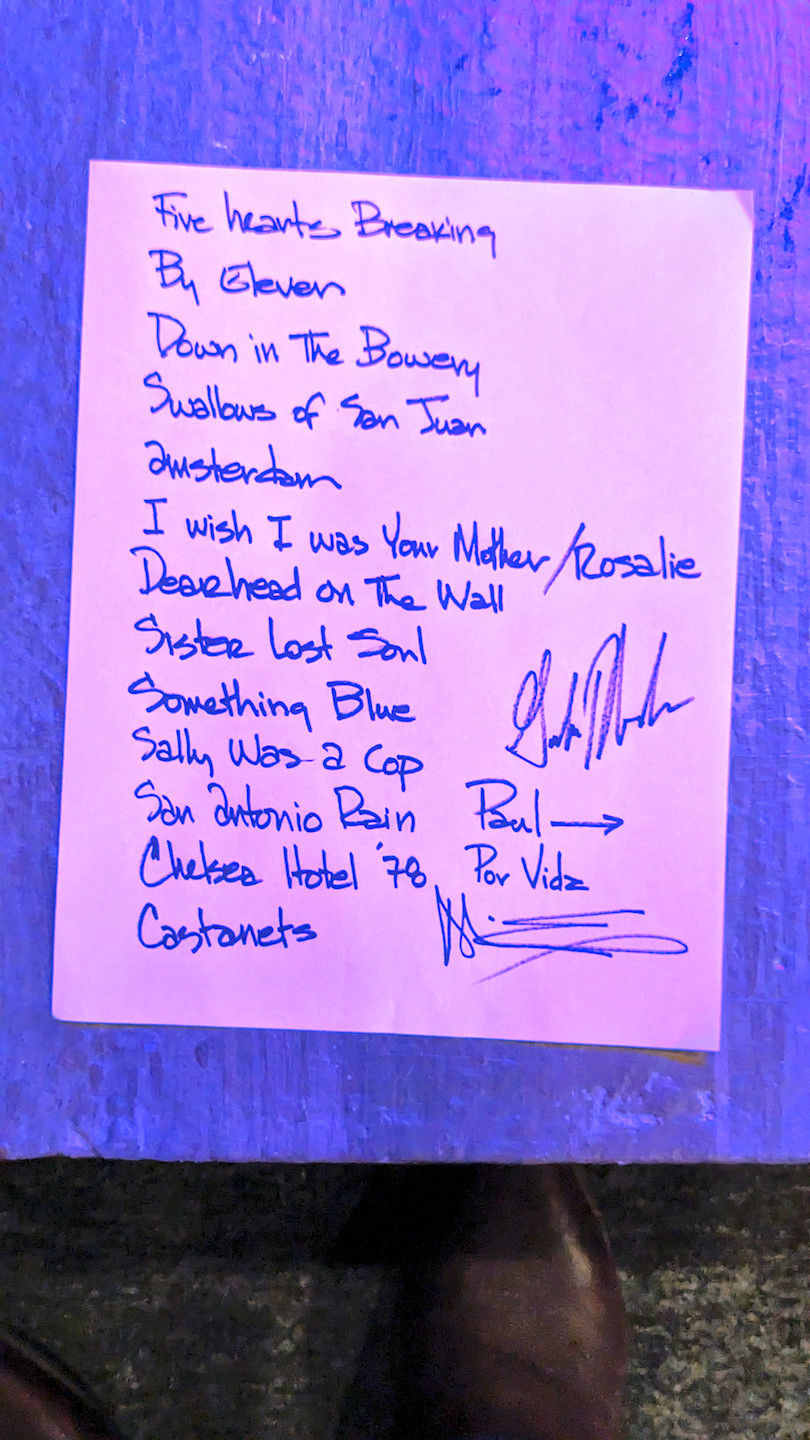 Five hearts Breaking
By Eleven
Down in The Bowery
Swallows of San Juan
Amsterdam
I wish I was Your Mother/Rosalie
Dearhead on The Wall
Sister Lost Soul
Something Blue
Sally Was a Cop
San Antonio Rain Paul →
Chelsea Hotel '78 Por Vida
Castanets